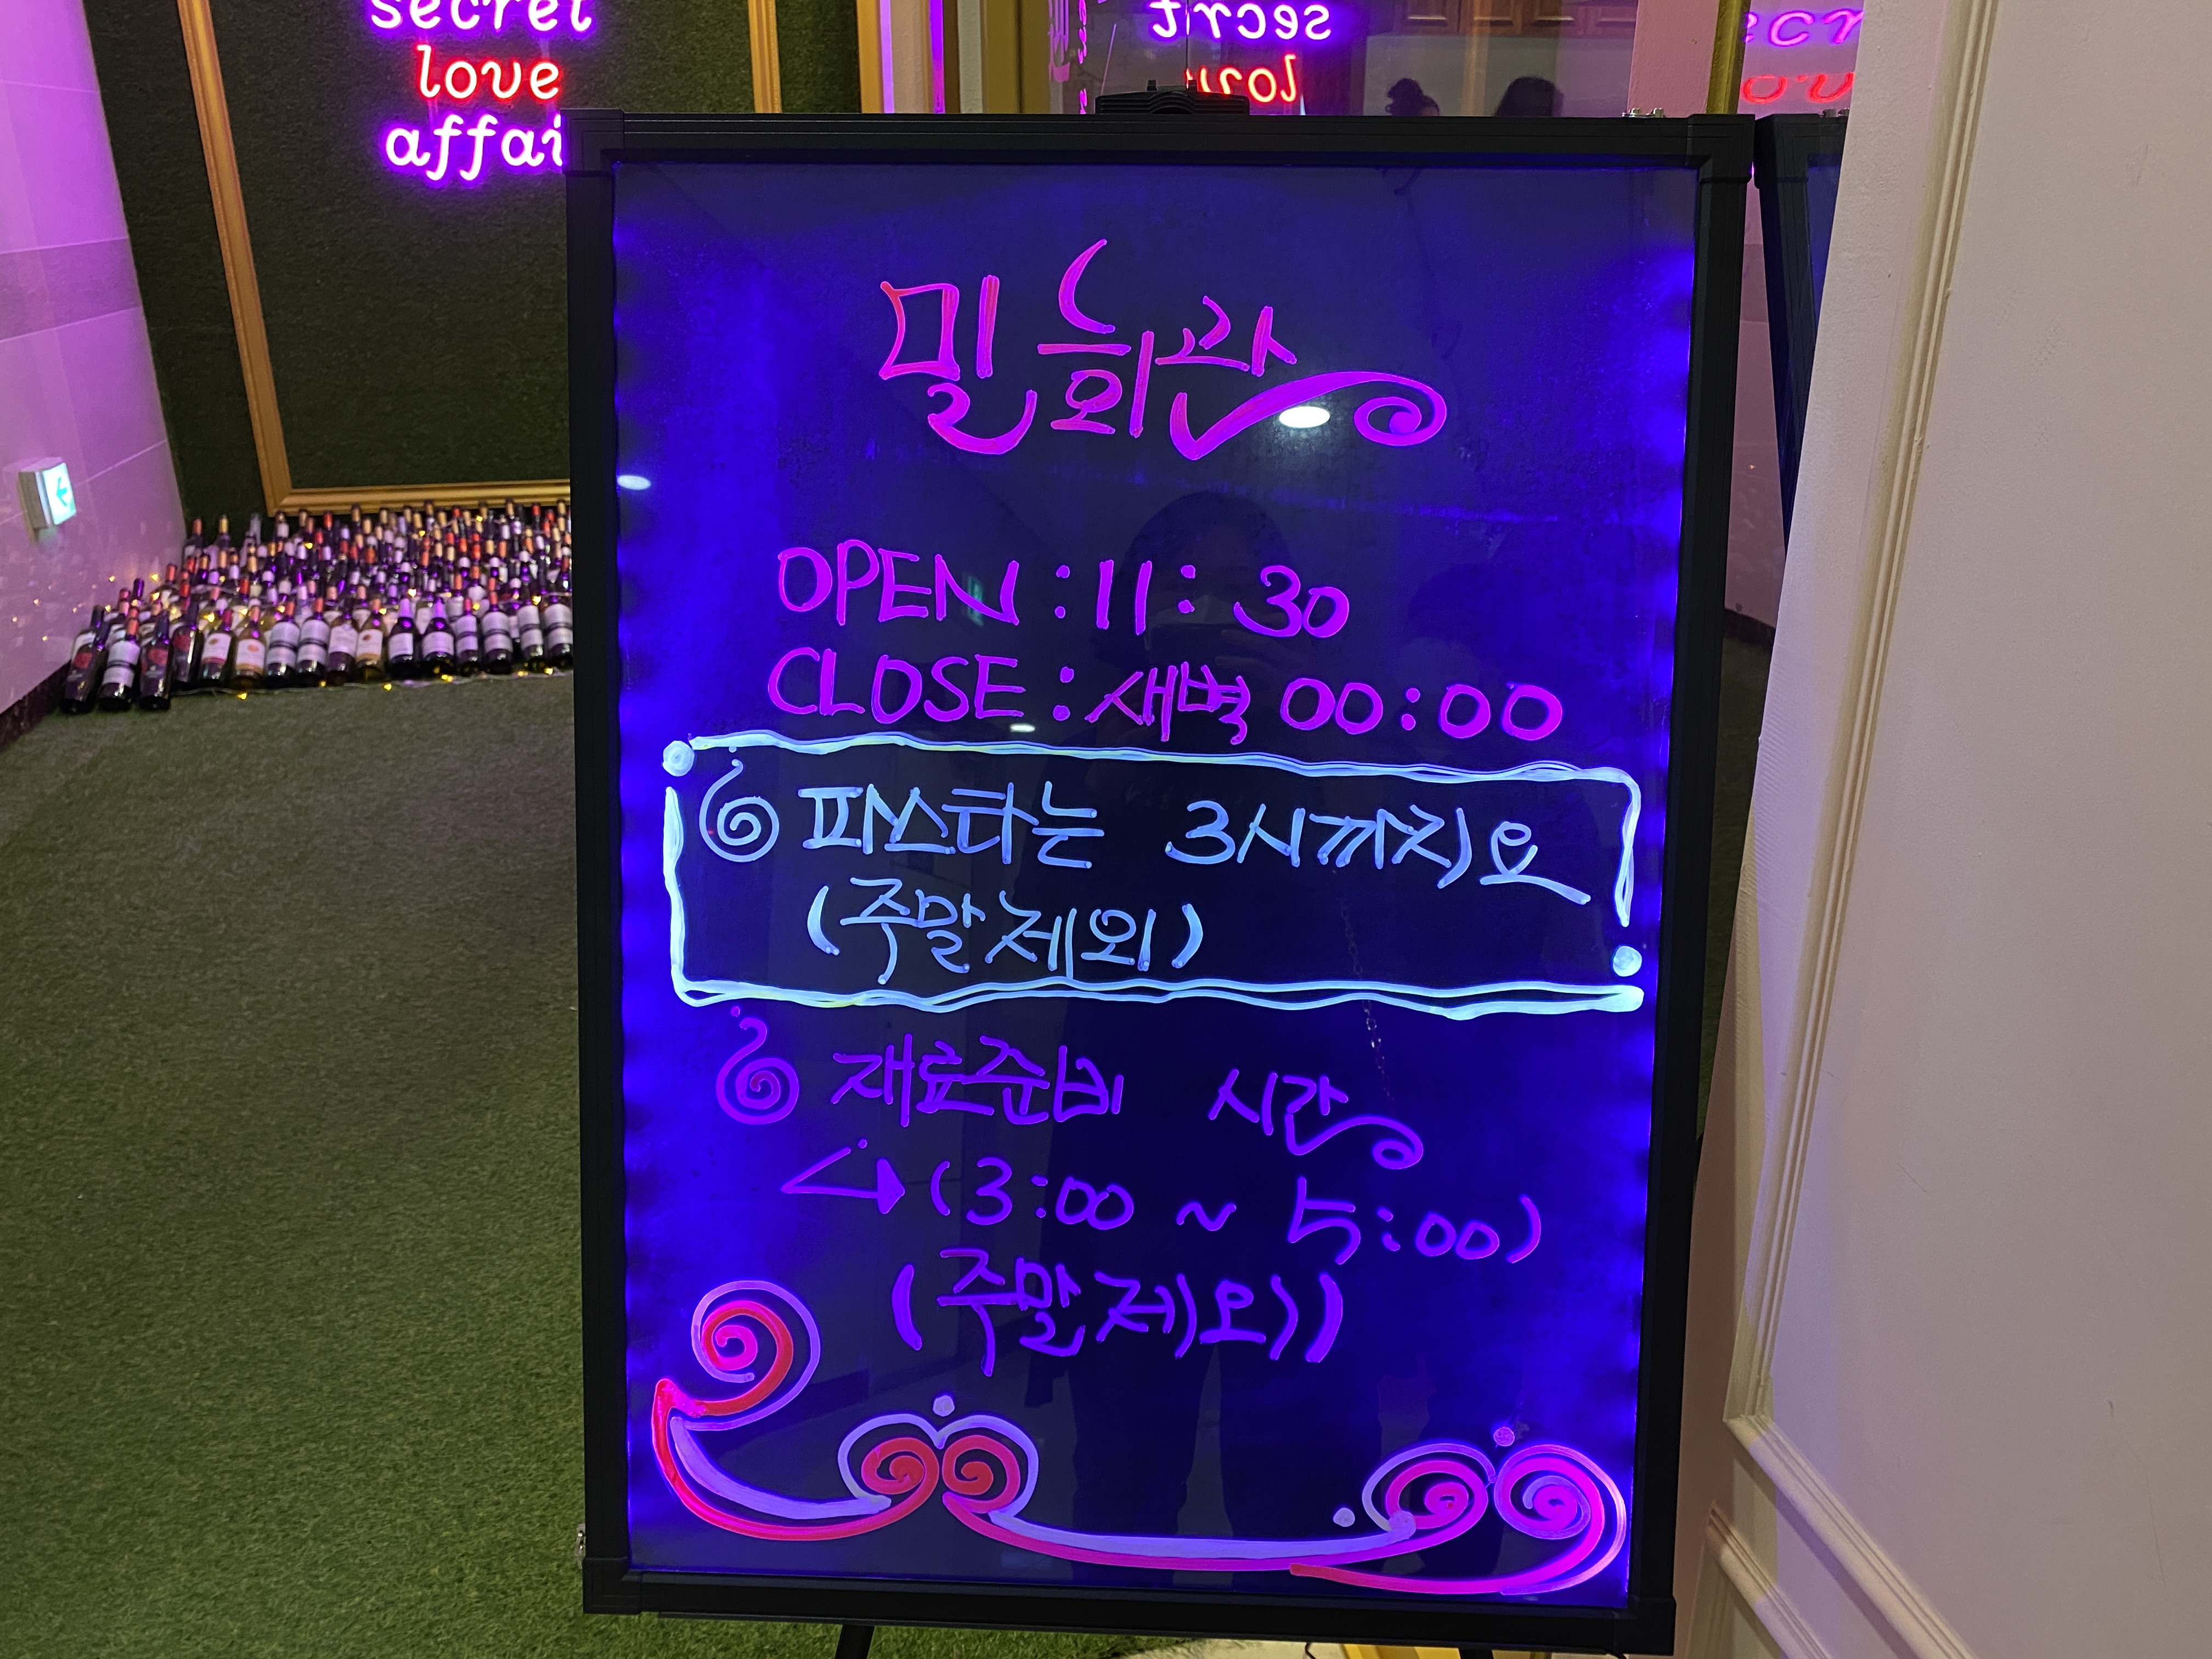 secret
love
affai
밀회관
OPEN : 11 : 30
CLOSE : 새벽 00:00
파스타는 3시까지요
(주말제외)
재료준비 시간
(3:00 ~ 5:00)
(주말제외)